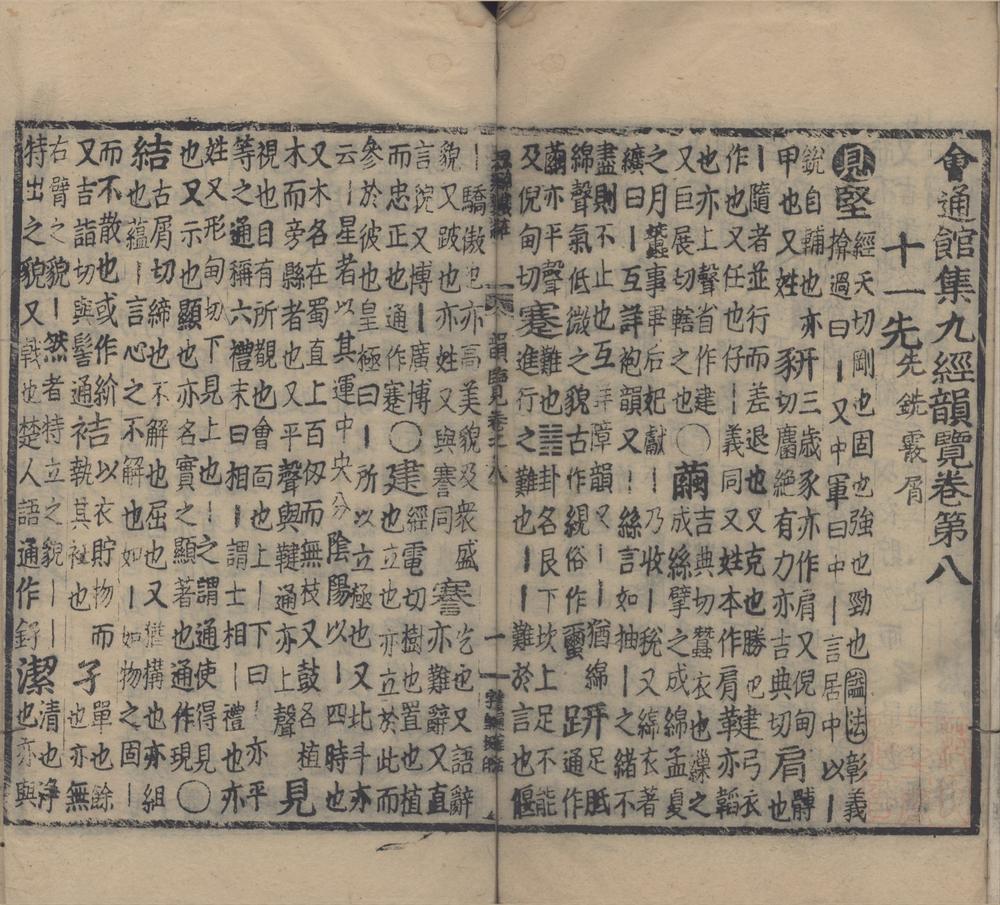 會通館集九經韻覽卷第八
十一先先銑霰屑
見堅經天切剛也固也強也勁也謚法彰義
揜過曰丨又中軍曰中丨言居中以丨
銳自輔也亦豜三歲豕亦作肩又倪甸
甲也又姓切麕絕有力亦吉典切肩髆也
丨隨者並行而差退也又克也勝也鞬弓衣
作也又任也仔丨義同又姓本作肩亦韜
也亦上聲省作建〇繭吉典切蠶衣也繅之
又巨展切轄之也成絲擘之成綿孟夏
之月蠶事畢后妃獻丨乃收丨稅又綿衣著
纊曰丨互詳袍韻又丨丨絲言如抽丨之緒不
盡則不止也互詳障韻又丨丨猶綿趼足胝
綿聲氣低微之貌古作絸俗作蠒通作
繭亦平聲蹇難也䷦卦名艮下坎上足不能
及倪甸切進行之難也丨丨難於言也偃
韻臨見卷之八
一
丨驕傲也亦高美貌及衆盛謇吃也又語辭
貌又跛也亦姓又與謇同亦難辭又直
言院又博丨廣博〇建經電切樹也置也植
而忠正也通作蹇也立也亦立於此而
參於彼也皇極曰丨所以立極也又比斗亦
云丨星者以其運中央分陰陽以丨四時也
又木名在蜀直上百仞而無枝又鼓名植
木而旁縣者也又平聲與鞬通亦上聲見
視也目有所覩也會面也上丨下曰丨亦平
等之通稱六禮末曰相丨謂士相丨禮也亦
姓又形甸切下見上也丨之謂通使得見
也又示也顯也亦名實之顯著也通作現〇
結古屑切締也不解也屈也又猶構也亦組
也蘊丨言心之不解也如丨丨如物之固丨
而不散也或作紒袺以衣貯物而孑單也餘
又吉詣切與髻通執其衽也也亦無
右臂之貌丨然者特立之貌丨丨潔清也淨
特出之貌又戟也楚人語通作釨也亦與